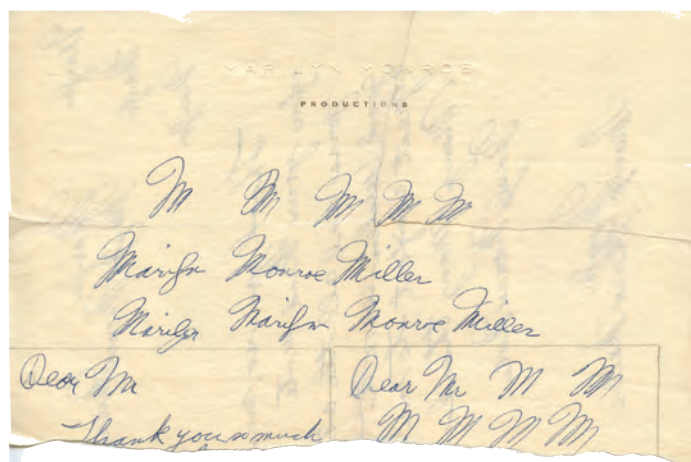 MARILYN MONROE
PRODUCTIONS
M M M M M
Marilyn Monroe Miller
Marilyn Marilyn Monroe Miller
Dear Mr
Thank you so much
Dear Mr M M
M M M M